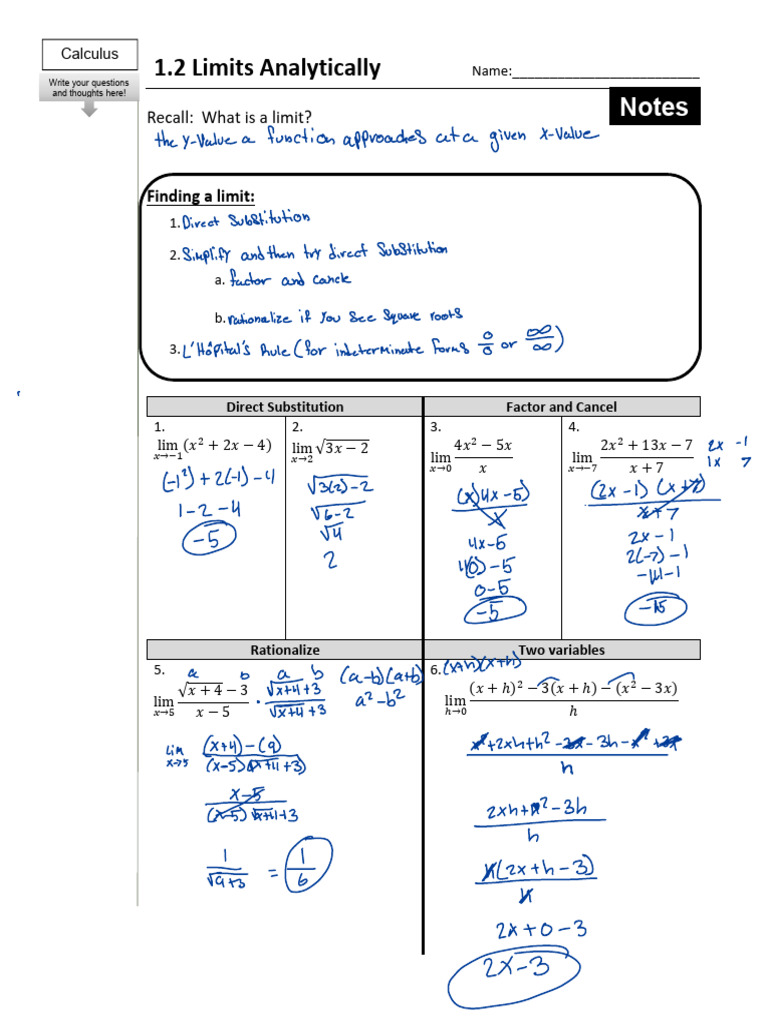 Calculus
Write your questions
and thoughts here!
1.2 Limits Analytically
Name:__________________________
Notes
Recall: What is a limit?
the y-value a function approaches at a given x-value
Finding a limit:
1. Direct Substitution
2. Simplify and then try direct substitution
a. factor and cancle
b. rationalize if you see square roots
3. L'Hôpital's Rule (for indeterminate forms 0/0 or ∞/∞)
Direct Substitution
1.
lim x→−1 (x² + 2x − 4)
(-1²) + 2(-1) - 4
1 - 2 - 4
-5
2.
lim x→2 √(3x − 2)
√(3(2) - 2)
√(6-2)
√4
2
Factor and Cancel
3.
lim x→0 (4x² − 5x)/x
(x)(4x-5)/x
4x-5
4(0)-5
0-5
-5
4.
lim x→−7 (2x² + 13x − 7)/(x + 7)
2x -1
1x 7
(2x-1)(x+7)/(x+7)
2x-1
2(-7)-1
-14-1
-15
Rationalize
5.
a b a b (a-b)(a+b)
lim x→5 (√(x + 4) − 3)/(x − 5) · (√(x+4)+3)/(√(x+4)+3)
a²-b²
lim x→5 ((x+4)-(9))/((x-5)(√(x+4)+3)
(x-5)/((x-5)√(x+4)+3
1/(√9+3) = 1/6
Two variables
6. (x+h)(x+h)
lim h→0 ((x + h)² − 3(x + h) − (x² − 3x))/h
(x²+2xh+h²-3x-3h-x²+3x)/h
(2xh+h²-3h)/h
h(2x+h-3)/h
2x+0-3
2x-3